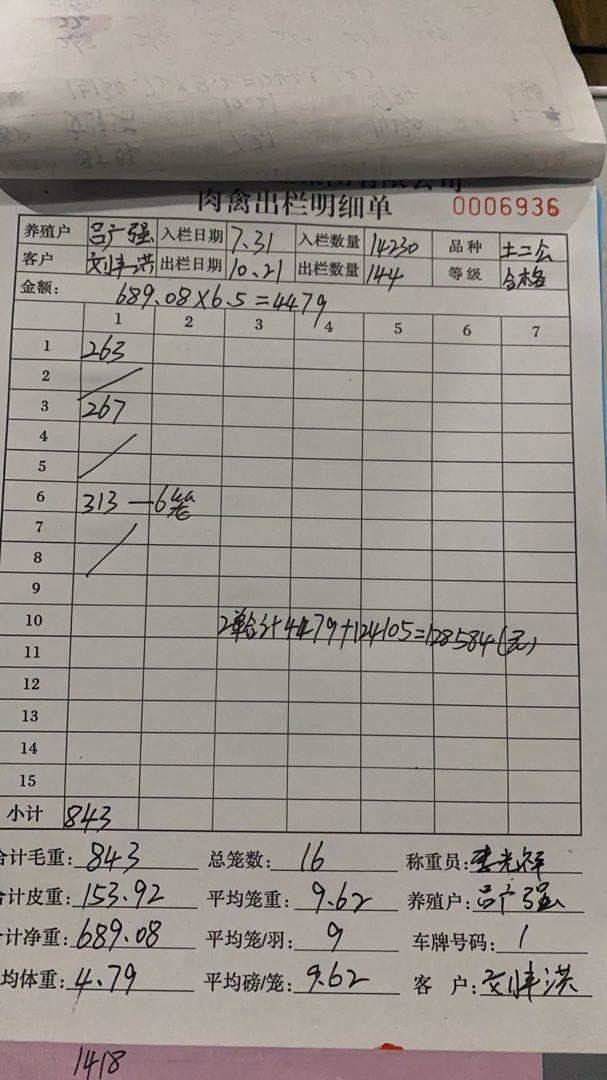 肉禽出栏明细单 0006936
养殖户 吕广强 入栏日期 7.31 入栏数量 14230 品种 土二公
客户 刘丰洪 出栏日期 10.21 出栏数量 144 等级 合格
金额: 689.08×6.5=4479
1 2 3 4 5 6 7
1 263
2
3 267
4
5
6 313—6笼
7
8
9
10 2单合计4479+124105=128584(元)
11
12
13
14
15
小计 843
合计毛重: 843 总笼数: 16 称重员: 李光祥
合计皮重: 153.92 平均笼重: 9.62 养殖户: 吕广强
计净重: 689.08 平均笼/羽: 9 车牌号码: 1
均体重: 4.79 平均磅/笼: 9.62 客户: 刘丰洪
1418